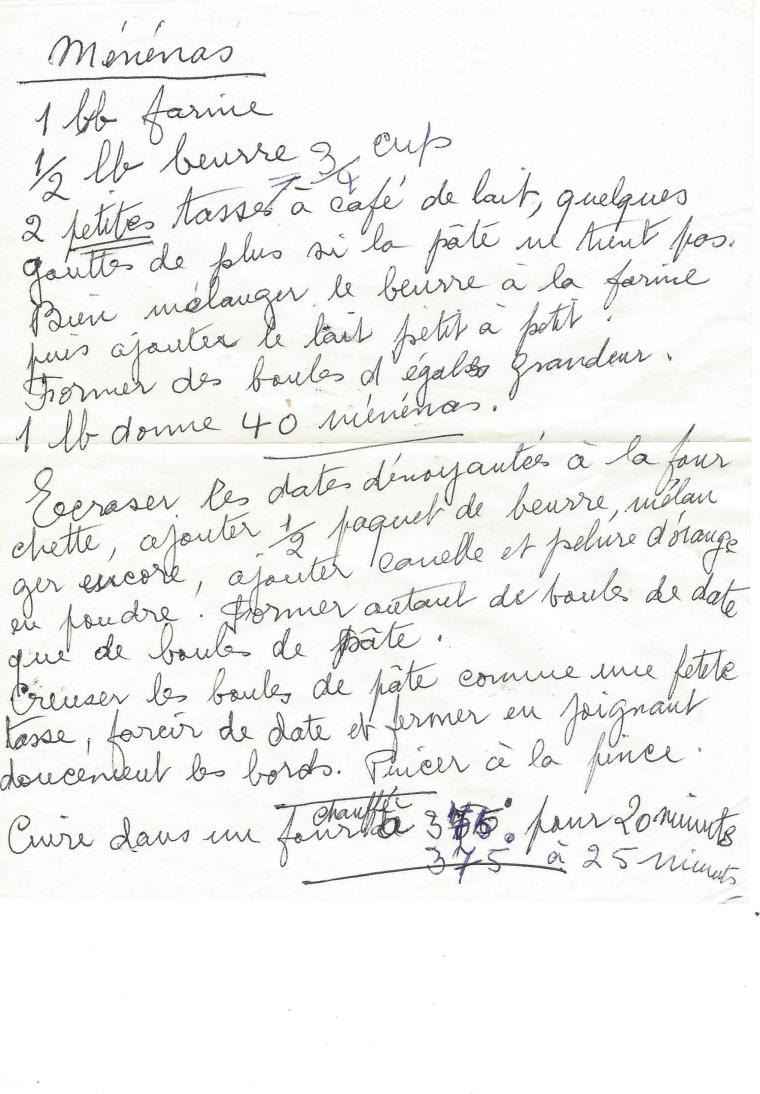 Ménénas
1 lb farine
1/2 lb beurre 3/4 cup
2 petites tasses à café de lait, quelques
gouttes de plus si la pâte ne tient pas.
Bien mélanger le beurre à la farine
puis ajouter le lait petit à petit.
Former des boules d'égales grandeur.
1 lb donne 40 ménénas.
Ecraser les dates dénoyautées à la four
chette, ajouter 1/2 paquet de beurre, mélan
ger encore, ajouter canelle et pelure d'orange
en poudre. Former autant de boules de date
que de boules de pâte.
Creuser les boules de pâte comme une petite
tasse, farcir de date et fermer en joignant
doucement les bords. Pincer à la pince.
Cuire dans un four chauffé à 375° pour 20 minuts
375° à 25 minuts